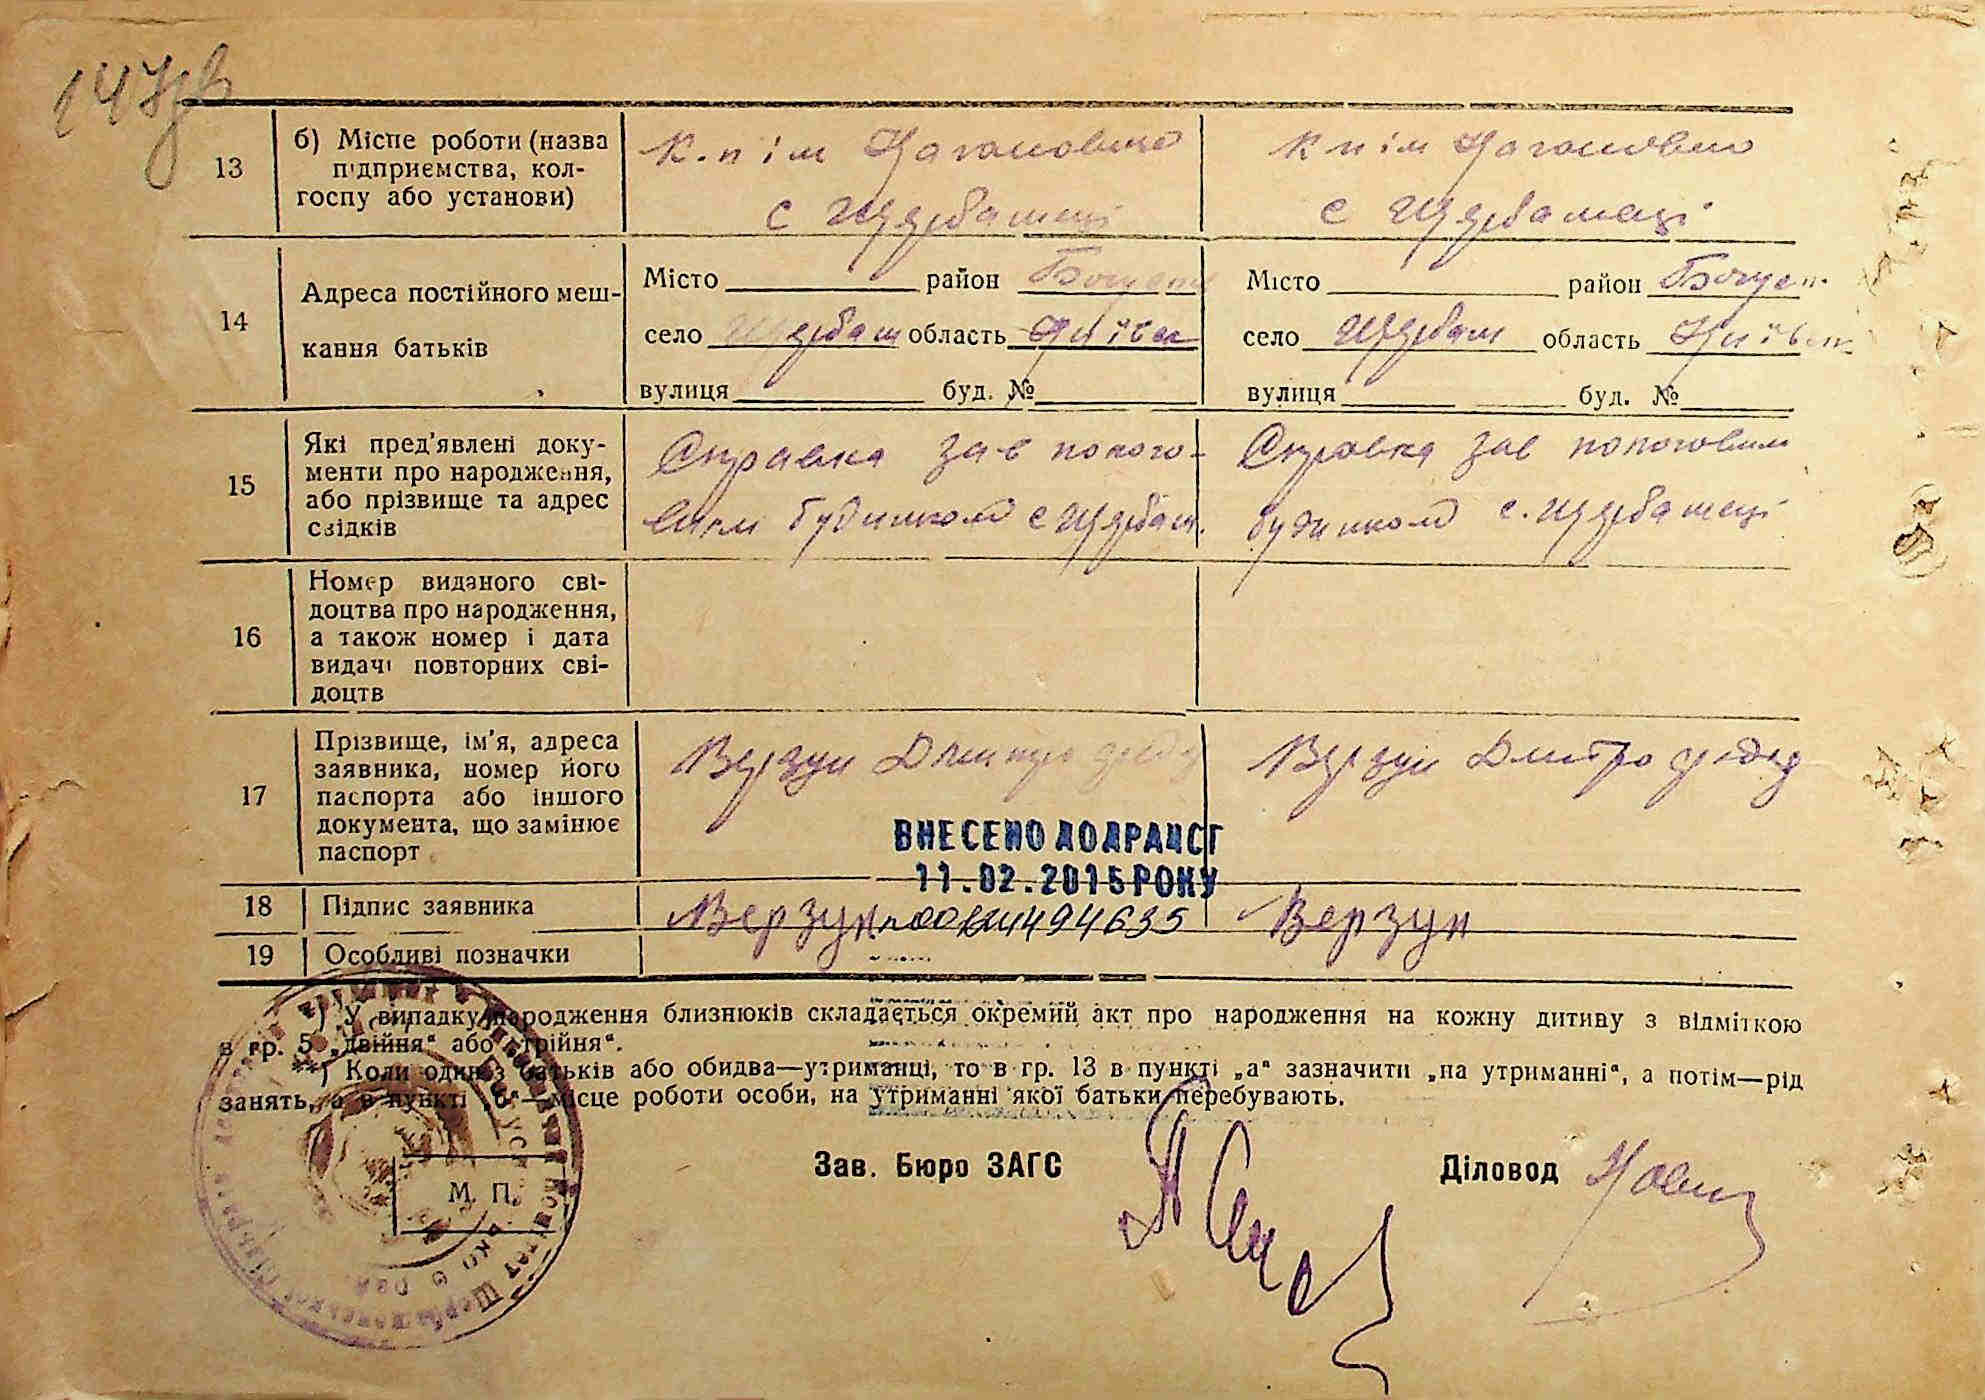 13
б) Місце роботи (назва
підприємства, кол-
госпу або установи)
К.п ім Кагановича
с Щербашеці
К п ім Кагановича
с Щербашеці
14
Адреса постійного меш-
кання батьків
Місто район Богусл
село Щербаш область Київськ
вулиця буд. №
Місто район Богусл.
село Щербаш область Київськ
вулиця буд. №
15
Які пред'явлені доку-
менти про народження,
або прізвище та адрес
свідків
Справка зав полого-
вим будинком с Щербаш.
Справка зав пологовим
будинком с. Щербашеці
16
Номер виданого сві-
доцтва про народження,
а також номер і дата
видачі повторних сві-
доцтв
17
Прізвище, ім'я, адреса
заявника, номер його
паспорта або іншого
документа, що замінює
паспорт
Верзун Дмитро
Верзун Дмитро
ВНЕСЕНО ДО ДРАЦСГ
11.02.2015 РОКУ
18
Підпис заявника
Верзун
494635
Верзун
19
Особливі позначки
*) У випадку народження близнюків складається окремий акт про народження на кожну дитину з відміткою
в гр. 5 „двійня“ або „трійня“.
**) Коли один з батьків або обидва—утриманці, то в гр. 13 в пункті „а“ зазначити „на утриманні“, а потім—рід
занять, а в пункті „б“—місце роботи особи, на утриманні якої батьки перебувають.
Зав. Бюро ЗАГС
Діловод
М. П.